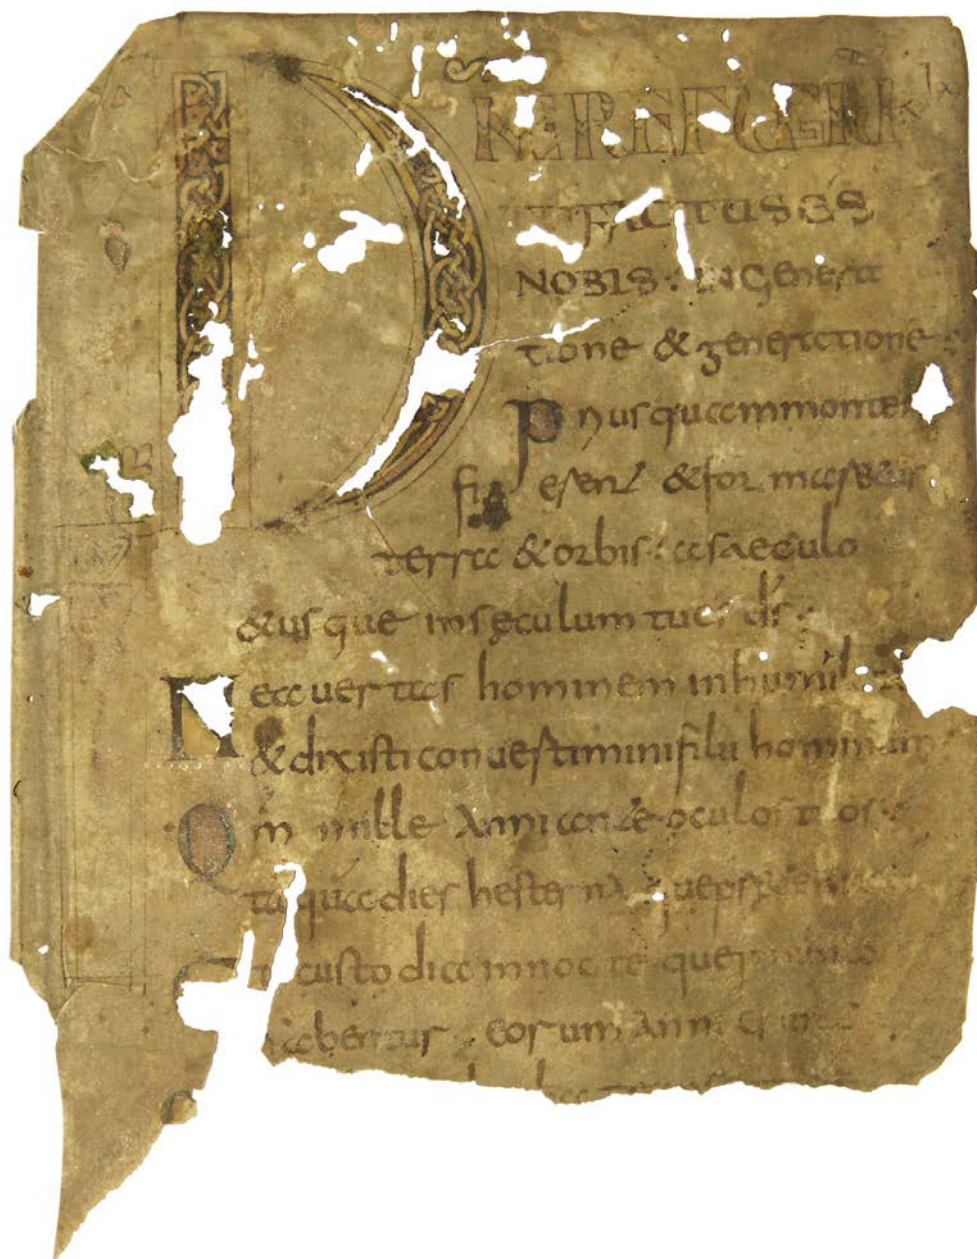 DNE REFUGIU
FACTUS ES
NOBIS : IN Genera
tione & generatione
P riusquam montes
fierent & formasetur
terra & orbis : a saeculo
& usque in sęculum tu es ds :
Ne auertas hominem in humili
& dixisti conuertimini filii hominum
Qm mille anni ante oculos tuos :
ta quã dies hesterna
custodia in nocte que
habentur eorum anni